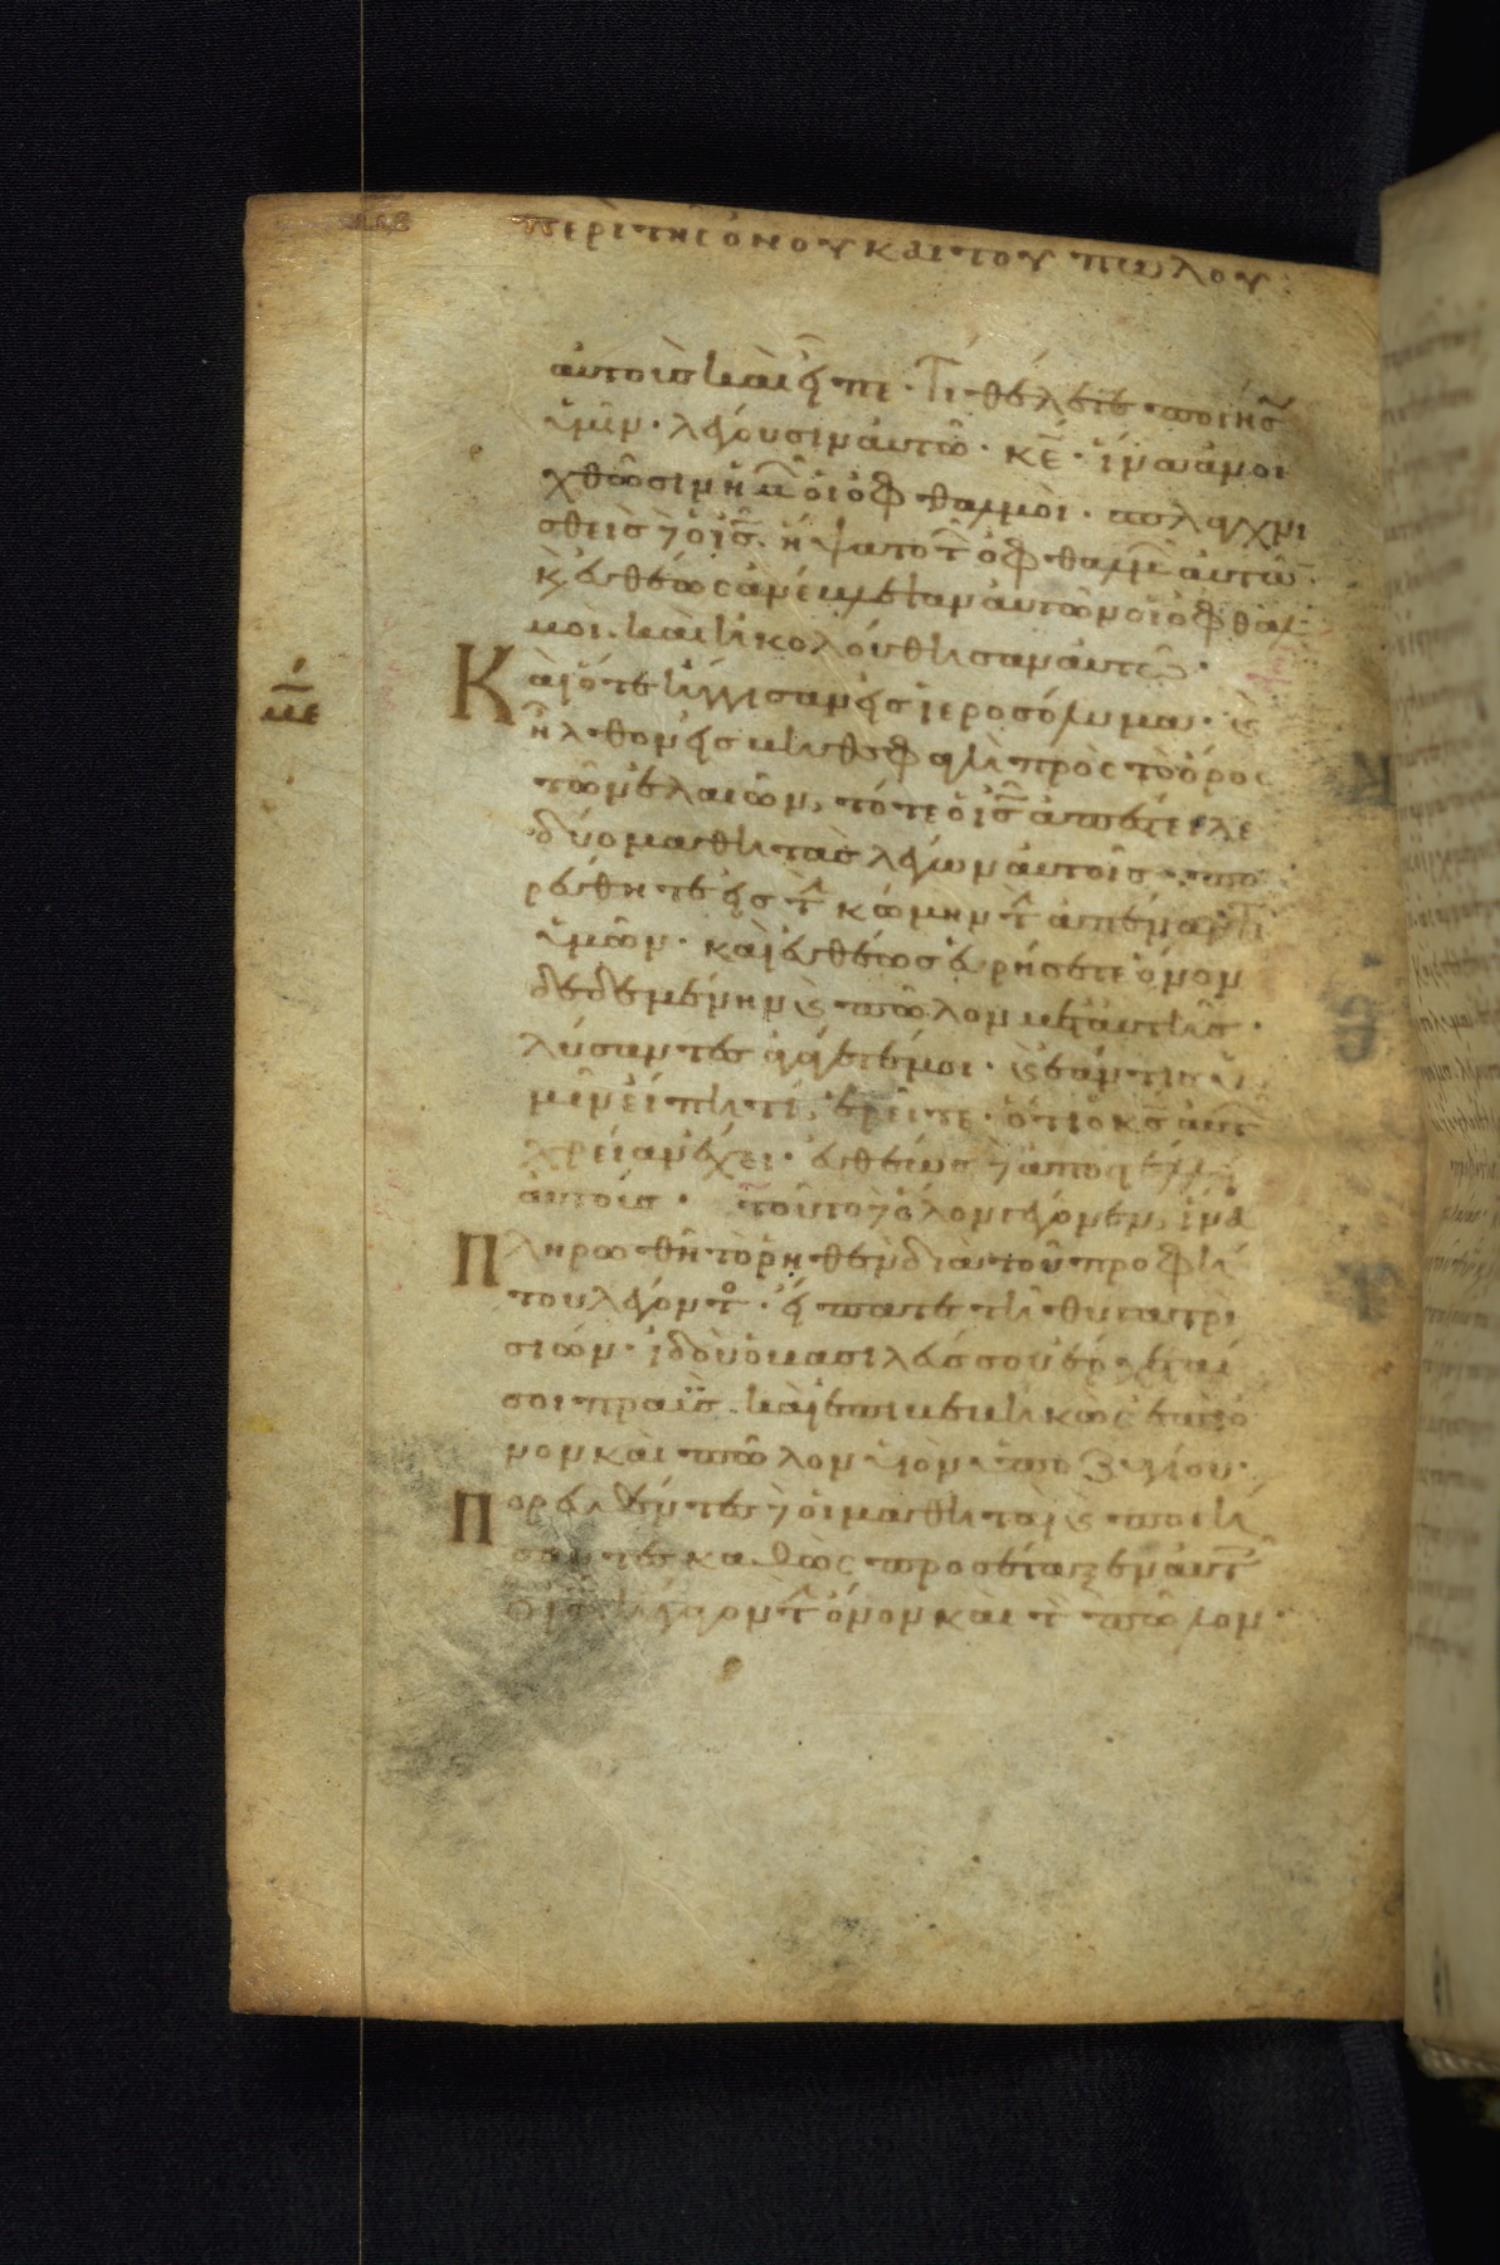 περὶ της ὄνου και του πωλου :
αὐτοὺς καὶ εἶπε · Τί θέλετε ποιήσ
ὑμῖν · λέγουσιν αὐτῶ · κε̅ · ἵνα ἀνοι
χθῶσιν ἡμ̅ οἱ ὀφθαλμοὶ · σπλαγχνι
σθεὶς δὲ ὁ ις̅ · ἥψατο τ̅ ὀφθαλμ̅ αὐτῶν ·
κ εὐθέως ἀνέβλεψαν αὐτῶν οἱ ὀφθαλ
μοι · καὶ ἠκολούθησαν αὐτῶ ·
Καὶ ὅτε ἤγγισαν εἰς ἱεροσόλυμα · κ
ἦλθον εἰς βηθσφαγὴ πρὸς τὸ ὄρος
τῶν ἐλαιῶν, τότε ὁ ις̅ ἀπέστειλε
δύο μαθητὰς λέγων αὐτοῖς · πο
ρεύθητε εἰς τ̅ κώμην τ̅ ἀπέναντι
ὑμῶν · καὶ εὐθέως εὑρήσετε ὄνον
δεδεμένην κ πῶλον μετ αὐτῆς ·
λύσαντες ἀγάγετέ μοι · κ ἐάν τις ὑ
μῖν εἴπη τί, ἐρεῖτε · ὅτι ὁ κς̅ αὐτ
χρείαν ἔχει · εὐθέως δὲ ἀποστελ
αὐτούς · τοῦτο δὲ ὅλον γέγονεν, ἵνα
Πληρωθῆ τὸ ῥηθὲν διὰ τοῦ προφή
του λέγοντο · εἴπατε τῆ θυγατρὶ
σιών · ἰδοὺ ὁ βασιλεύς σου ἔρχεταί
σοι πραῢς · καὶ ἐπιβεβηκὼς ἐπὶ ὄ
νον καὶ πῶλον υἱὸν ὑποζυγίου ·
Πορευθέντες δὲ οἱ μαθηταὶ κ ποιή
σαντες καθὼς προσέταξεν αὐτ
ὁ ις̅ ἤγαγον τ̅ ὄνον και τ̅ πῶλον ·
με̅